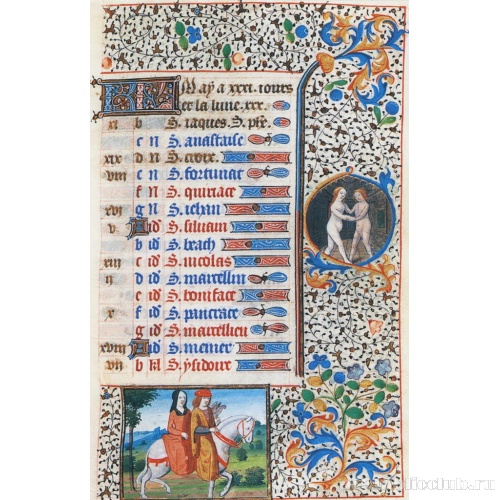 May a xxxi. iours
et la lune. xxx.
xi b S. iaques. S. phe.
c n S. anastaise
xix d n S. croix.
viii e n S. fortunat
f n S. quiriace
xvi g n S. iehan
v. A id S. siluain
b id S. brach
xiii c id S. nicolas
ii d id S. marcellin
e id S. boniface
x f id S. pancrace
g id S. marcellien
xviii A id S. meiner
vii b kl S. ysidoire